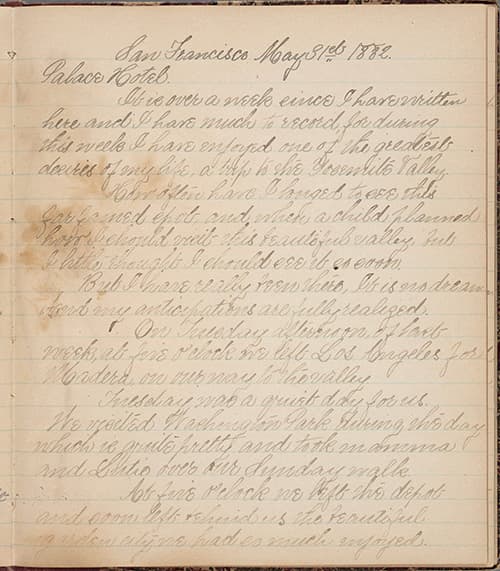 San Francisco May 31st 1882.
Palace Hotel.
It is over a week since I have written
here and I have much to record, for during
this week I have enjoyed one of the greatest
desires of my life, a trip to the Yosemite Valley.
How often have I longed to see this
far famed spot, and when a child planned
how I should visit this beautiful valley, but
I little thought I should see it so soon.
But I have really been there, It is no dream
and my anticipations are fully realized.
On Tuesday afternoon, of last
week, at five o'clock we left Los Angeles for
Madera, on our way to the valley.
Tuesday was a quiet day for us.
We visited Washington Park during the day
which is quite pretty, and took mamma
and over our Sunday walk.
At five o'clock we left the depot
and soon left behind us the beautiful
garden city we had so much enjoyed.